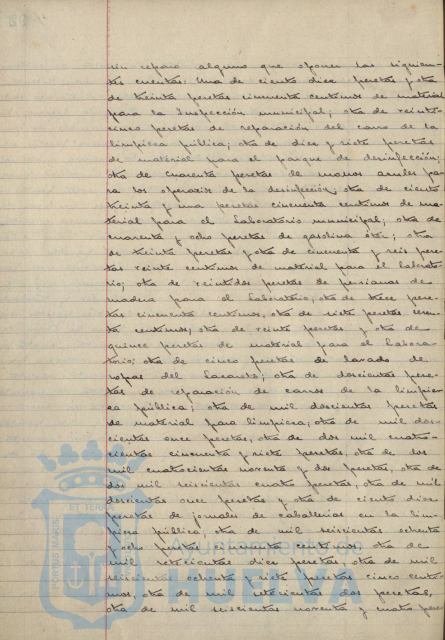 sin reparo alguno que oponer las siguien-
tes cuentas: Una de ciento diez pesetas y otra
de treinta pesetas cincuenta centimos de material
para la Inspección municipal; otra de veinti-
cinco pesetas de reparación del carro de la
limpieza pública; otra de diez y siete pesetas
de material para el parque de desinfección;
otra de cuarenta pesetas de monos azules pa-
ra los operarios de la desinfección, otra de ciento
treinta y una pesetas cincuenta centimos de ma-
terial para el Laboratorio municipal; otra de
cuarenta y ocho pesetas de gasolina éter; otra
de treinta pesetas y otra de cincuenta y seis pese-
tas veinte centimos de material para el laborato-
rio; otra de veintidos pesetas de persianas de
madera para el laboratorio, otra de trece pese-
tas cincuenta centimos, otra de siete pesetas sesen-
ta centimos, otra de veinte pesetas y otra de
quince pesetas de material para el labora-
torio; otra de cinco pesetas de lavado de
ropas del ; otra de doscientas pese-
tas de reparación de carros de la limpie-
za pública; otra de mil doscientas pesetas
de material para limpieza; otra de mil dos-
cientas once pesetas, otra de dos mil cuatro-
cientas cincuenta y siete pesetas, otra de dos
mil cuatrocientas noventa y dos pesetas, otra de
dos mil seiscientas cuatro pesetas, otra de mil
doscientas once pesetas y otra de ciento diez
pesetas de jornales de caballerias en la lim-
pieza pública; otra de mil seiscientas ochenta
y ocho pesetas cincuenta centimos otra de
mil setecientas diez pesetas otra de mil
seiscientas ochenta y siete pesetas cinco centi-
mos, otra de mil setecientas dos pesetas,
otra de mil seiscientas noventa y cuatro pese
PORTUS MARIS ET TERRE
Ayuntamiento de
HUELVA